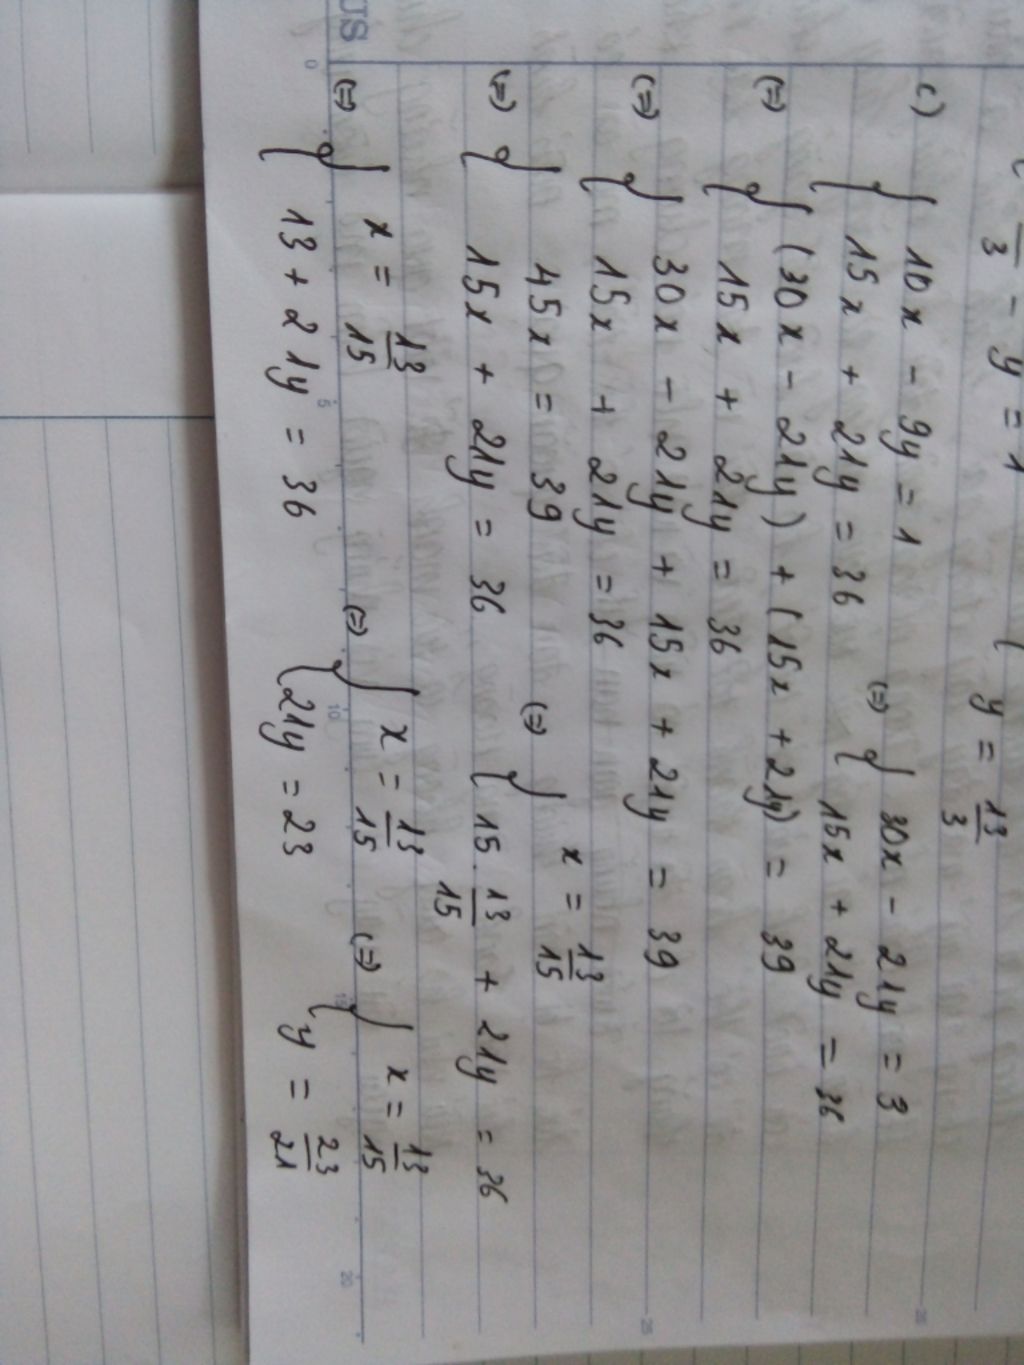 3 - y = 1
y = 13/3
c) { 10x - 9y = 1
15x + 21y = 36
(=) { 30x - 21y = 3
15x + 21y = 36
(=) { (30x - 21y) + (15x + 21y) = 39
15x + 21y = 36
(=) { 30x - 21y + 15x + 21y = 39
15x + 21y = 36
(=) { 45x = 39
15x + 21y = 36
(=) { x = 13/15
15 . 13/15 + 21y = 36
(=) { x = 13/15
13 + 21y = 36
(=) { x = 13/15
21y = 23
(=) { x = 13/15
y = 23/21
US
0 5 10 15 20
25